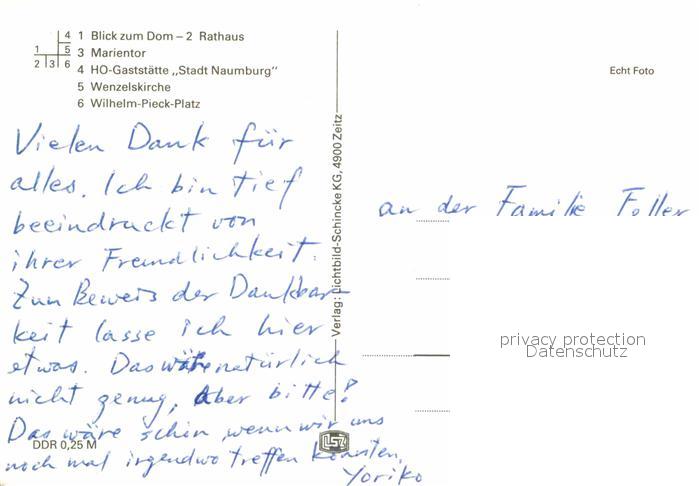 1 Blick zum Dom – 2 Rathaus
3 Marientor
4 HO-Gaststätte „Stadt Naumburg“
5 Wenzelskirche
6 Wilhelm-Pieck-Platz
4
1 5
2 3 6
Echt Foto
Vielen Dank für
alles. Ich bin tief
beeindruckt von
ihrer Freundlichkeit.
Zum Beweis der Dankbar-
keit lasse ich hier
etwas. Das wäre natürlich
nicht genug, Aber bitte!
Das wäre schön, wenn wir uns
noch mal irgendwo treffen könnten.
Yoriko
DDR 0,25 M
Verlag: Lichtbild-Schincke KG, 4900 Zeitz
LSZ
an der Familie Foller
privacy protection
Datenschutz